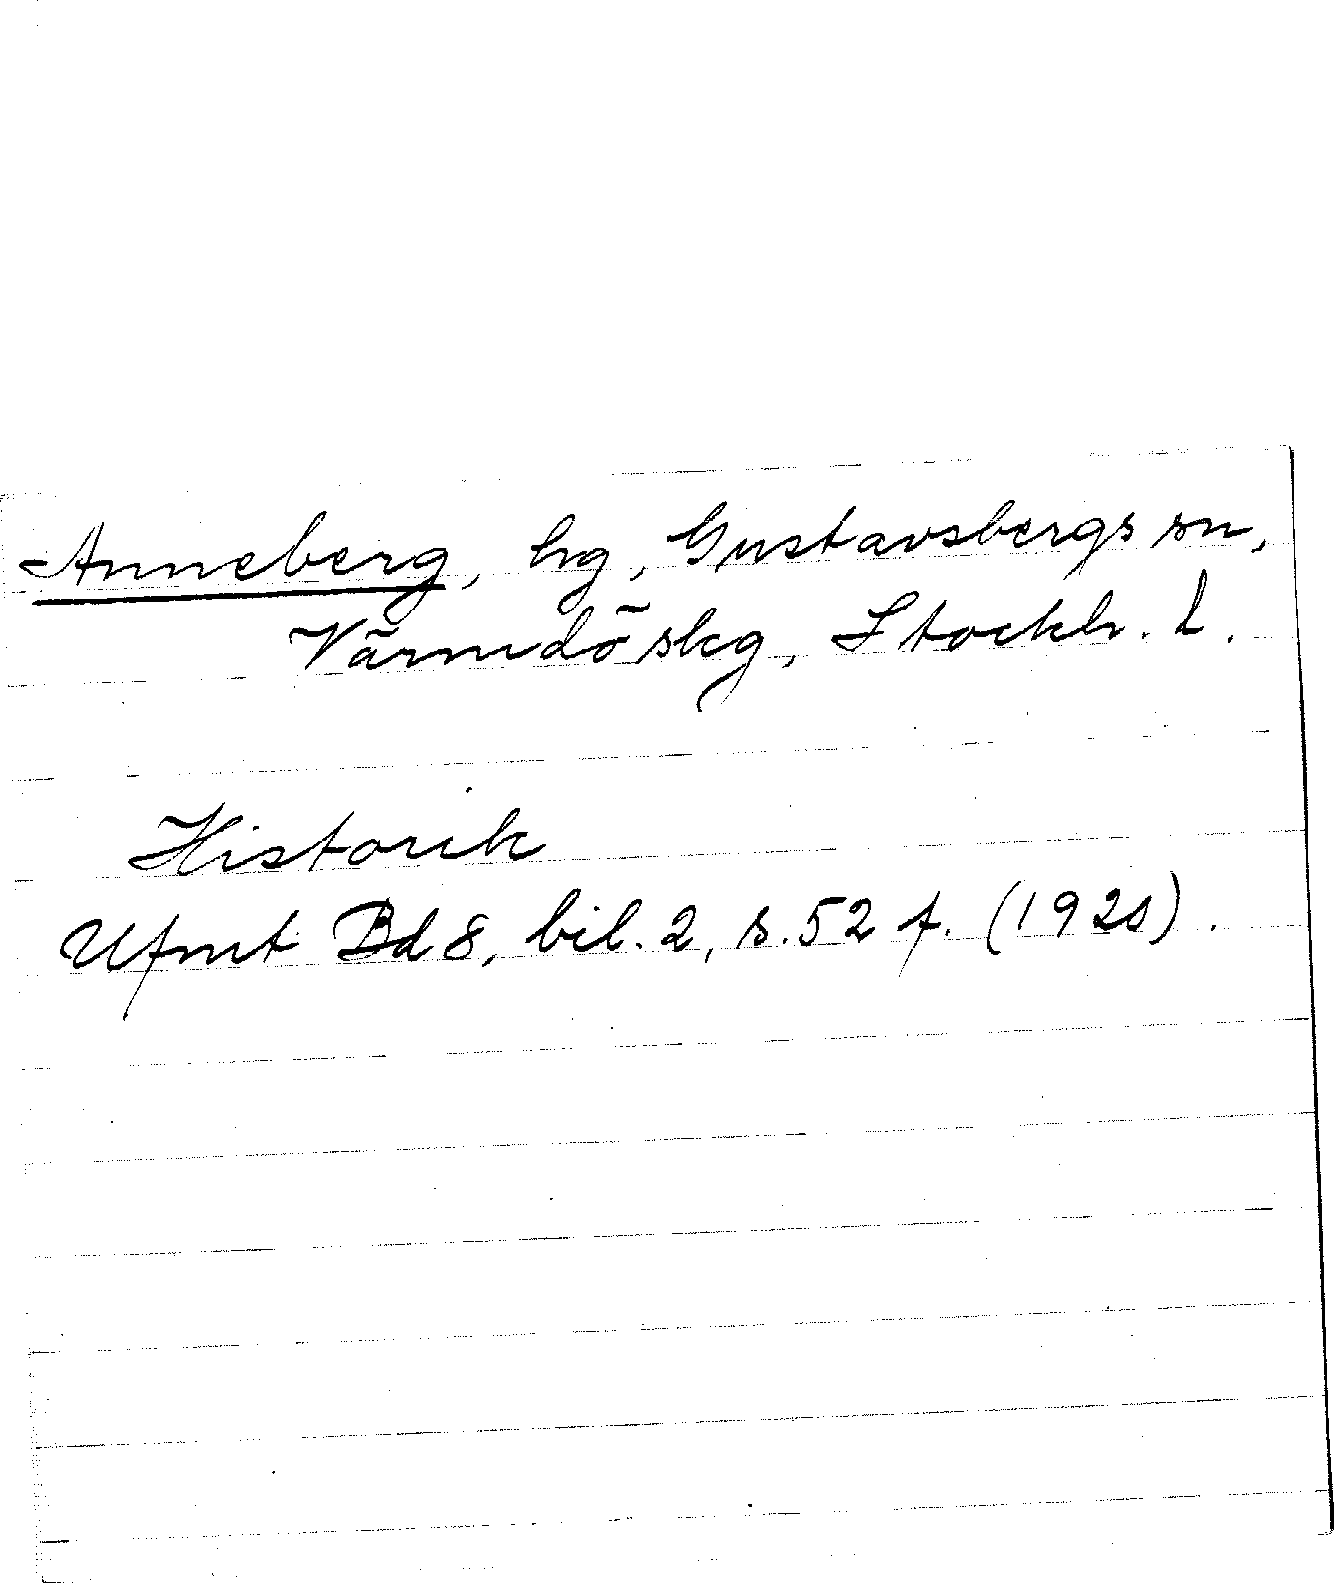 Anneberg, hg, Gustavsbergs sn,
Värmdö skg, Stockh. l.
Historik
Ufmt Bd 8, bil. 2, s. 52 f. (1920).